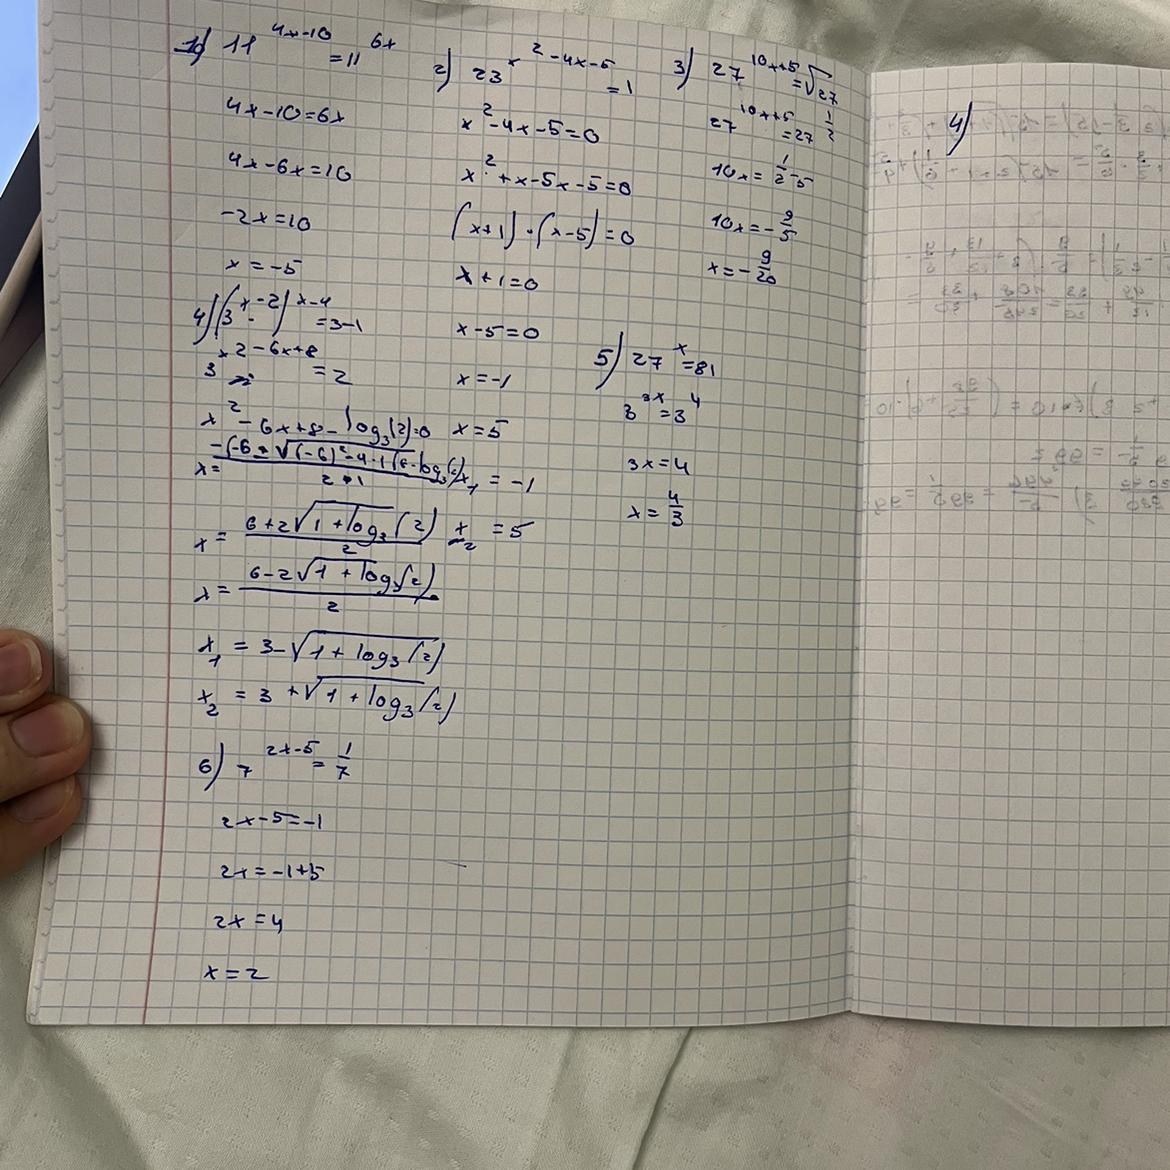 1) 11^(4x-10) = 11^(6x)
4x-10=6x
4x-6x=10
-2x=10
x=-5
2) 23^(x^2-4x-5) = 1
x^2-4x-5=0
x^2+x-5x-5=0
(x+1)·(x-5)=0
x+1=0
x-5=0
x=-1
x=5
x₁=-1
x₂=5
3) 27^(10x+5) = √27
27^(10x+5) = 27^(1/2)
10x=1/2-5
10x=-9/5
x=-9/20
4) (3^(x-2))^(x-4) = 3-1
3^(x^2-6x+8) = 2
x^2-6x+8-log₃(2)=0
x=
x=(6+2√(1+log₃(2)))/2
x=(6-2√(1+log₃(2)))/2
x₁=3-√(1+log₃(2))
x₂=3+√(1+log₃(2))
5) 27^x=81
3^(3x)=3^4
3x=4
x=4/3
6) 7^(2x-5)=1/7
2x-5=-1
2x=-1+5
2x=4
x=2
4)